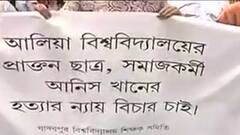 আলিয়া বিশ্ববিদ্যালয়ের
প্রাক্তন ছাত্র, সমাজকর্মী
আনিস খানের
হত্যার ন্যায় বিচার চাই।
যাদবপুর বিশ্ববিদ্যালয় শিক্ষক সমিতি